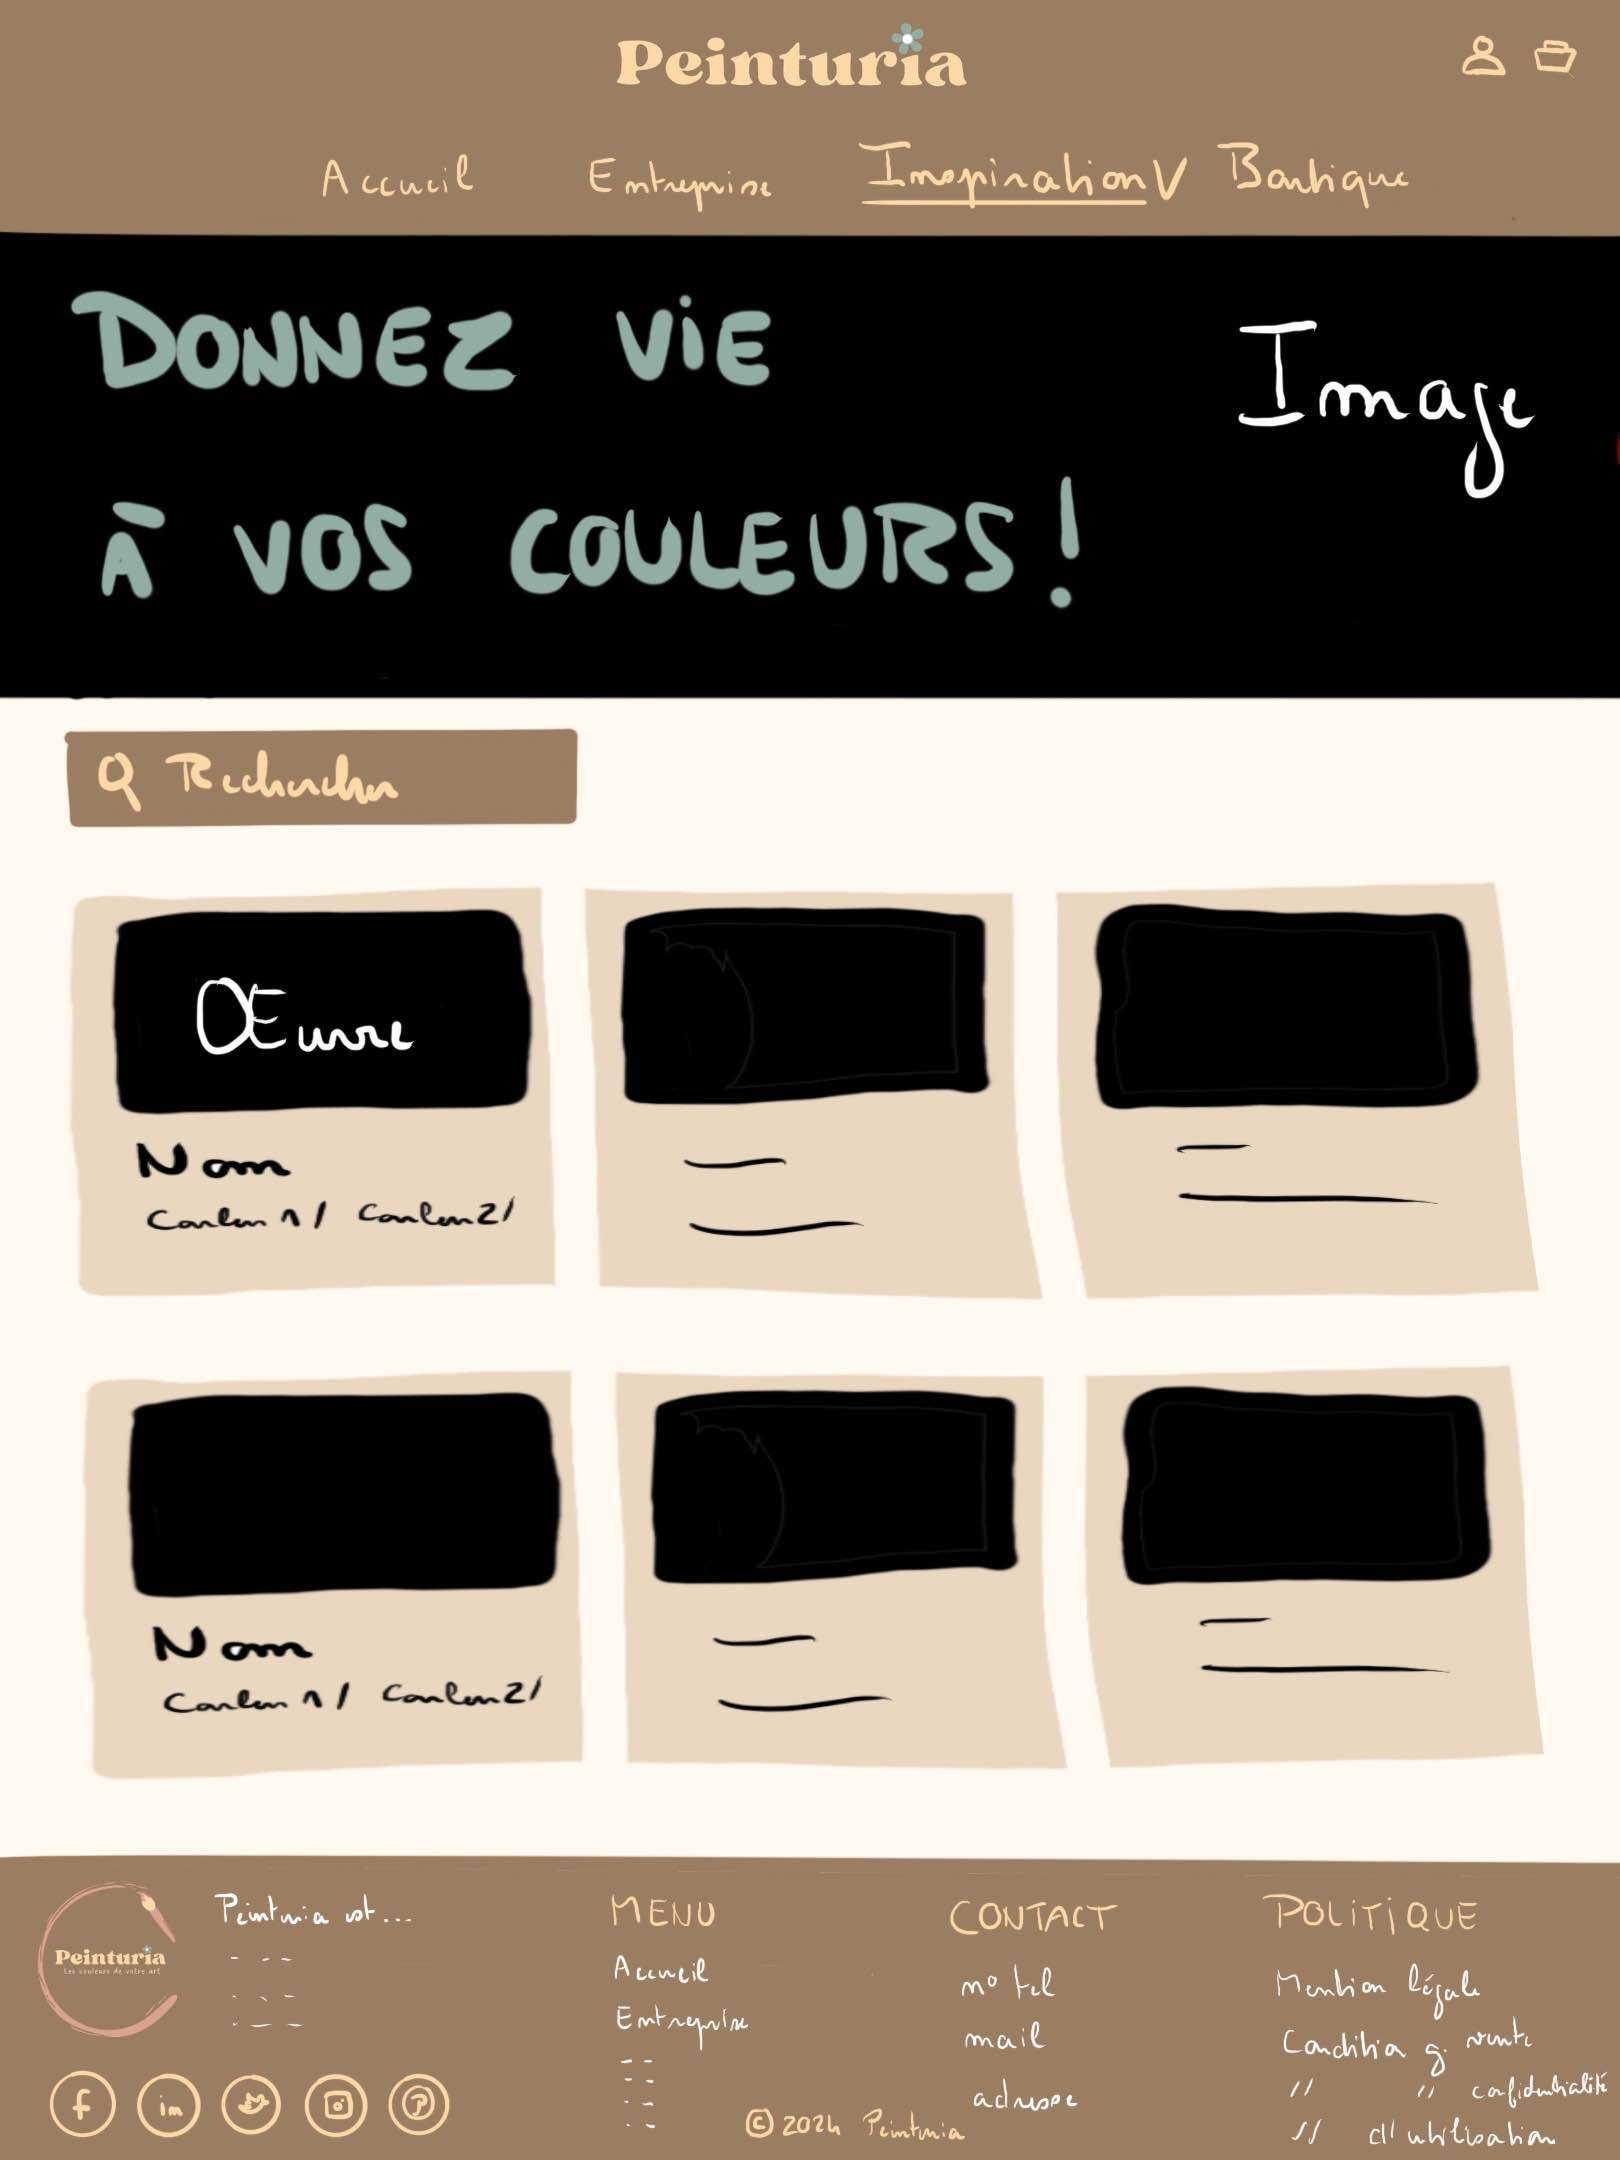 Peinturia
Accueil Entreprise Inspiration V Boutique
DONNEZ ViE
À VOS COULEURS!
Image
Rechercher
Œuvre
Nom
Couleur 1 / Couleur 2 /
Nom
Couleur 1 / Couleur 2 /
Peinturia
Les couleurs de votre art
Peinturia est...
MENU
Accueil
Entreprise
CONTACT
n° tel
mail
adresse
POLITIQUE
Mention légale
Condition g. vente
" " confidentialité
" d'utilisation
f in
© 2024 Peinturia